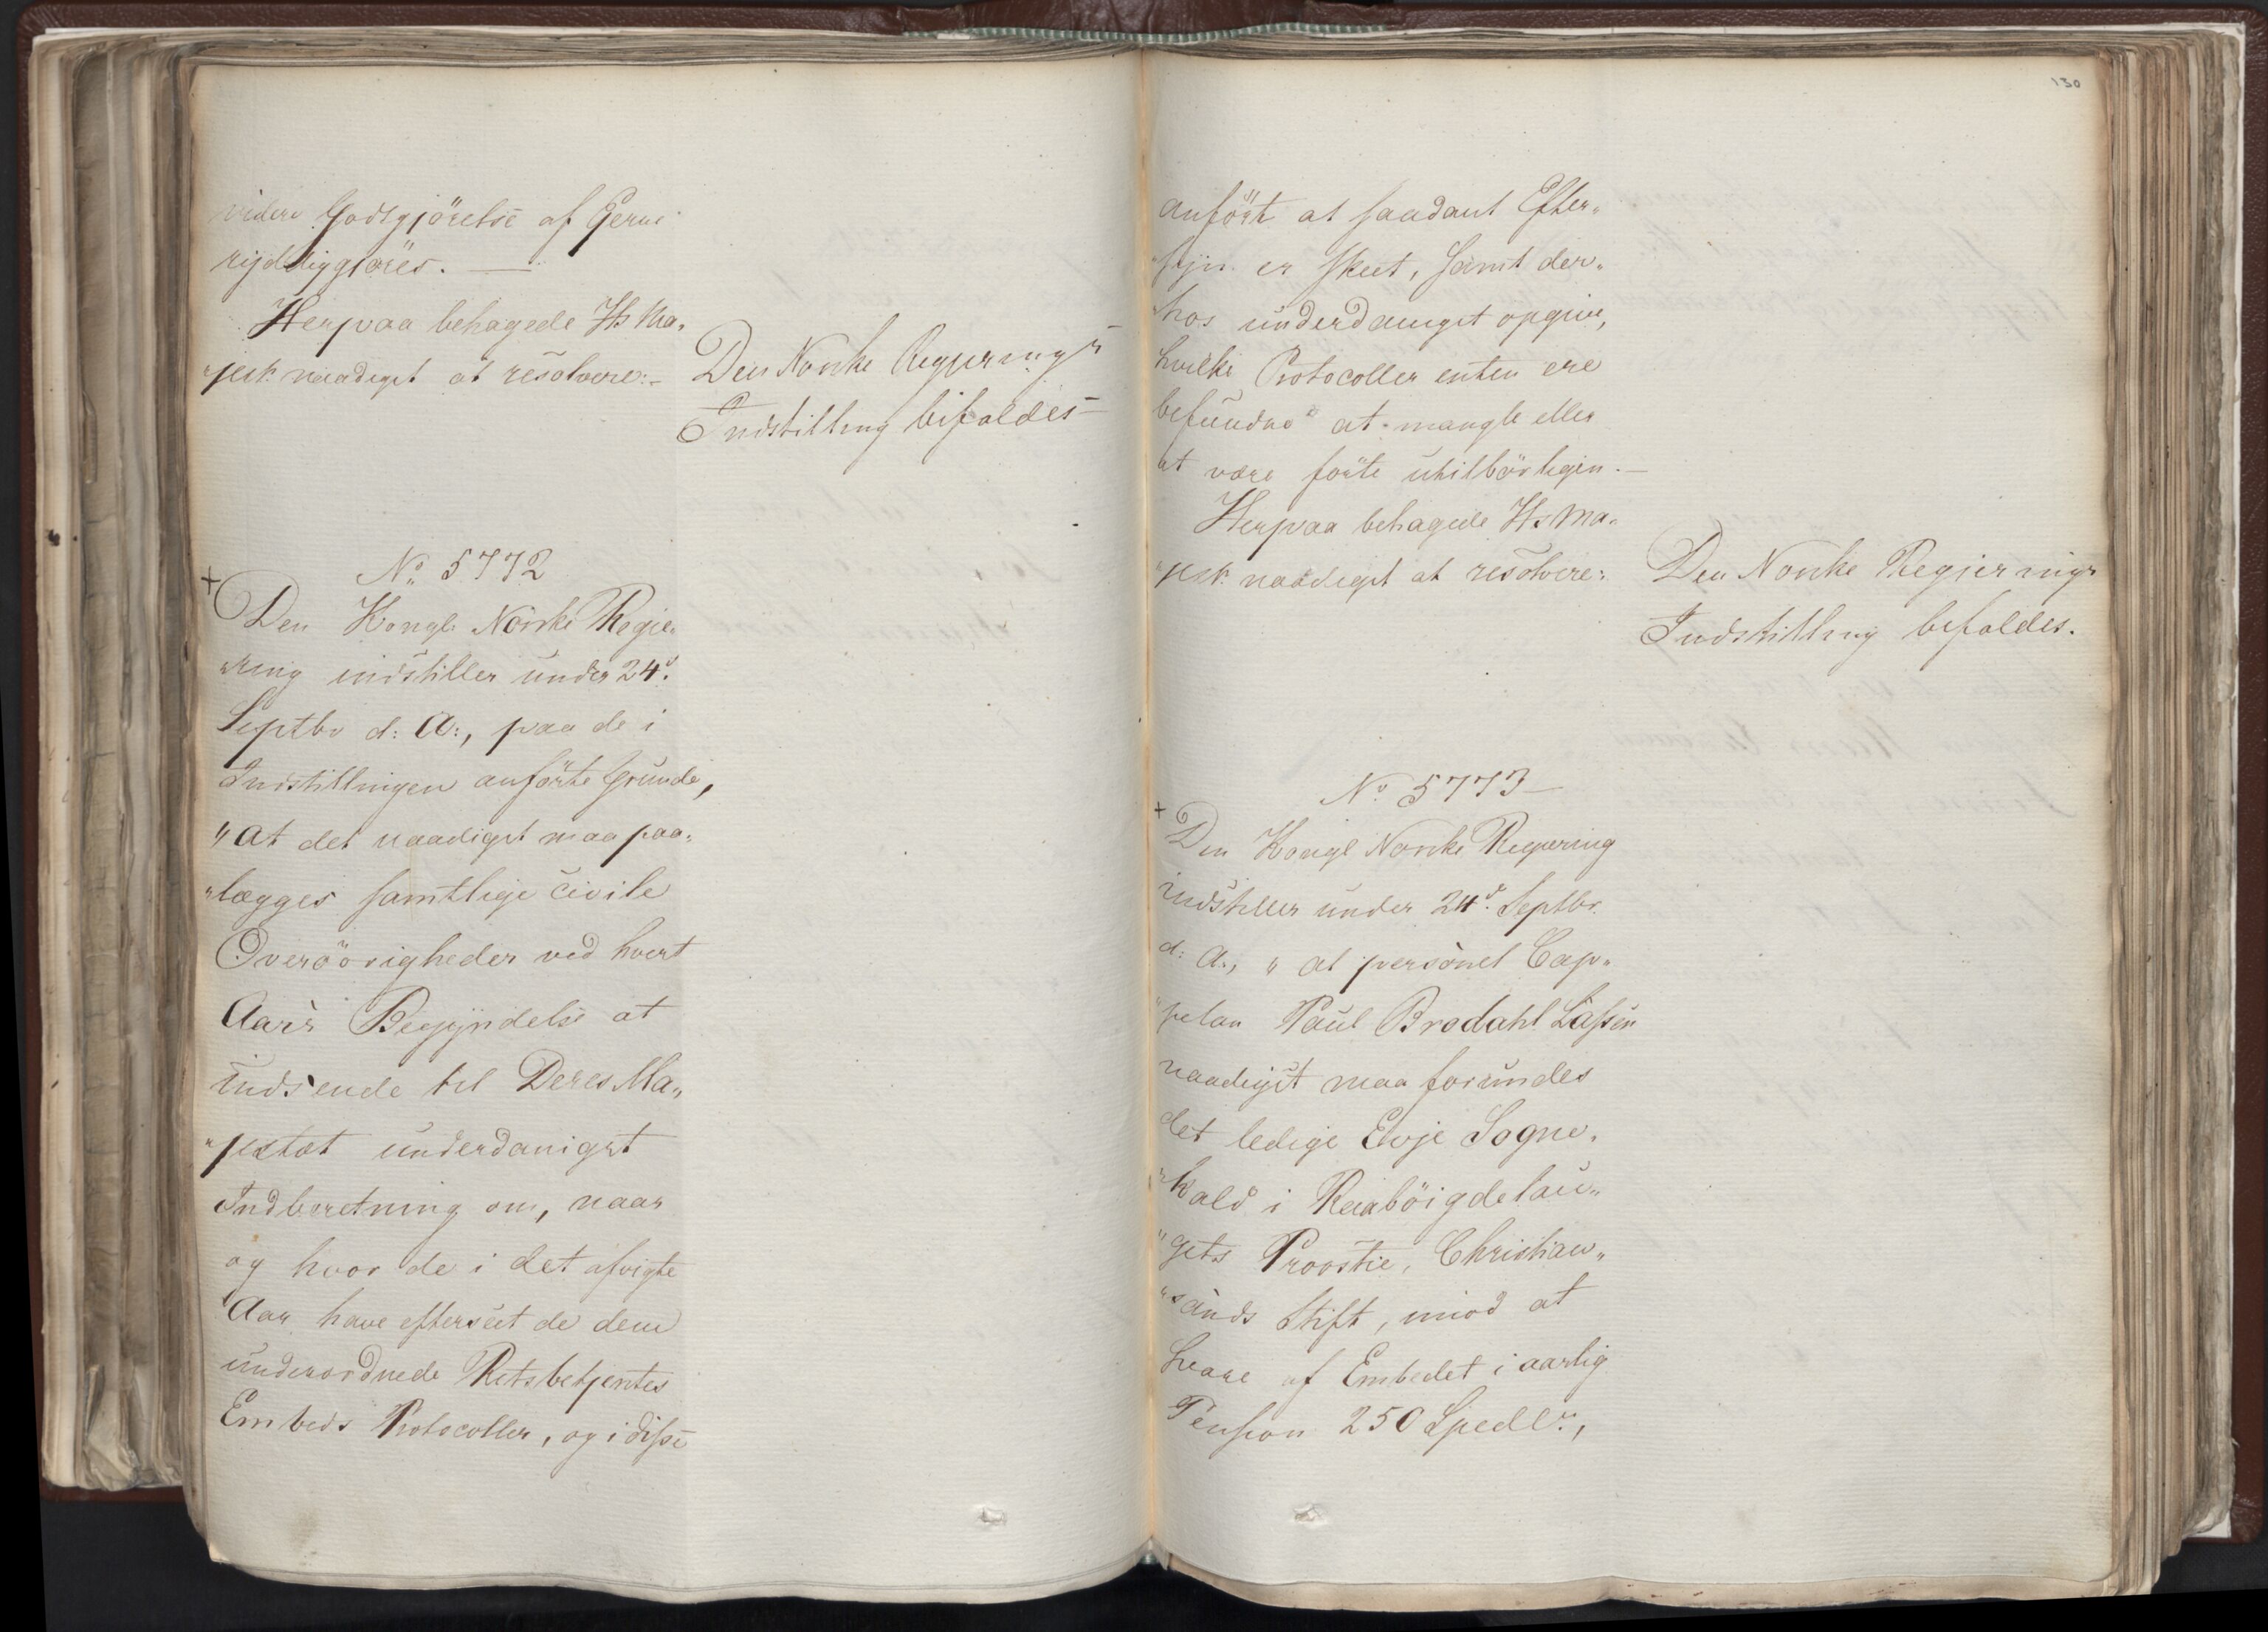 videre Godtgjörelse af Gerne
rigdliggjöres. —
Herpaa behagede Hs Ma„
„jest: naadigst at resolvere:-
Den Norske Regjerings
Indstilling bifaldes-
No 5772
+
Den Kongl. Norske Regje„
„ring indstiller under 24d
Septbr d: A:, paa de i
Indstillingen anförte Grunde,
"at det naadigst maa paa„
„lægges samtlige civile
Overöörigheder ved hvert
Aars Begyndelse at
indsende til Deres Ma„
„jestæt underdanigst
Indberetning om, naar
og hvor de i det afvigte
Aar have efterseet de dem
underordnede Retsbetjentes
Embeds Protocoller, og i disse
130
anfört at saadant Efter„
„syn er skeet, samt der„
„hos underdanigst opgive,
hvilke Protocoller enten ere
befundne at mangle eller
at være förte utilbörligen.—
Herpaa behagede Hs Ma„
„jest: naadigst at resolvere:
Den Norske Regjerings
Indstilling bifaldes.
No 5773
+
Den Kongl Norske Regjering
indstiller under 24d. Septbr.
d: A:, "at personel Cap„
„pelan Paul Brodahl Lassen
naadigst maa forundes
det ledige Evje Sogne„
„kald i Raaböigdelau„
„gets Proostie, Christian„
„sands Stift, imod at
svare af Embedet i aarlig
Pension 250 Spedlr,